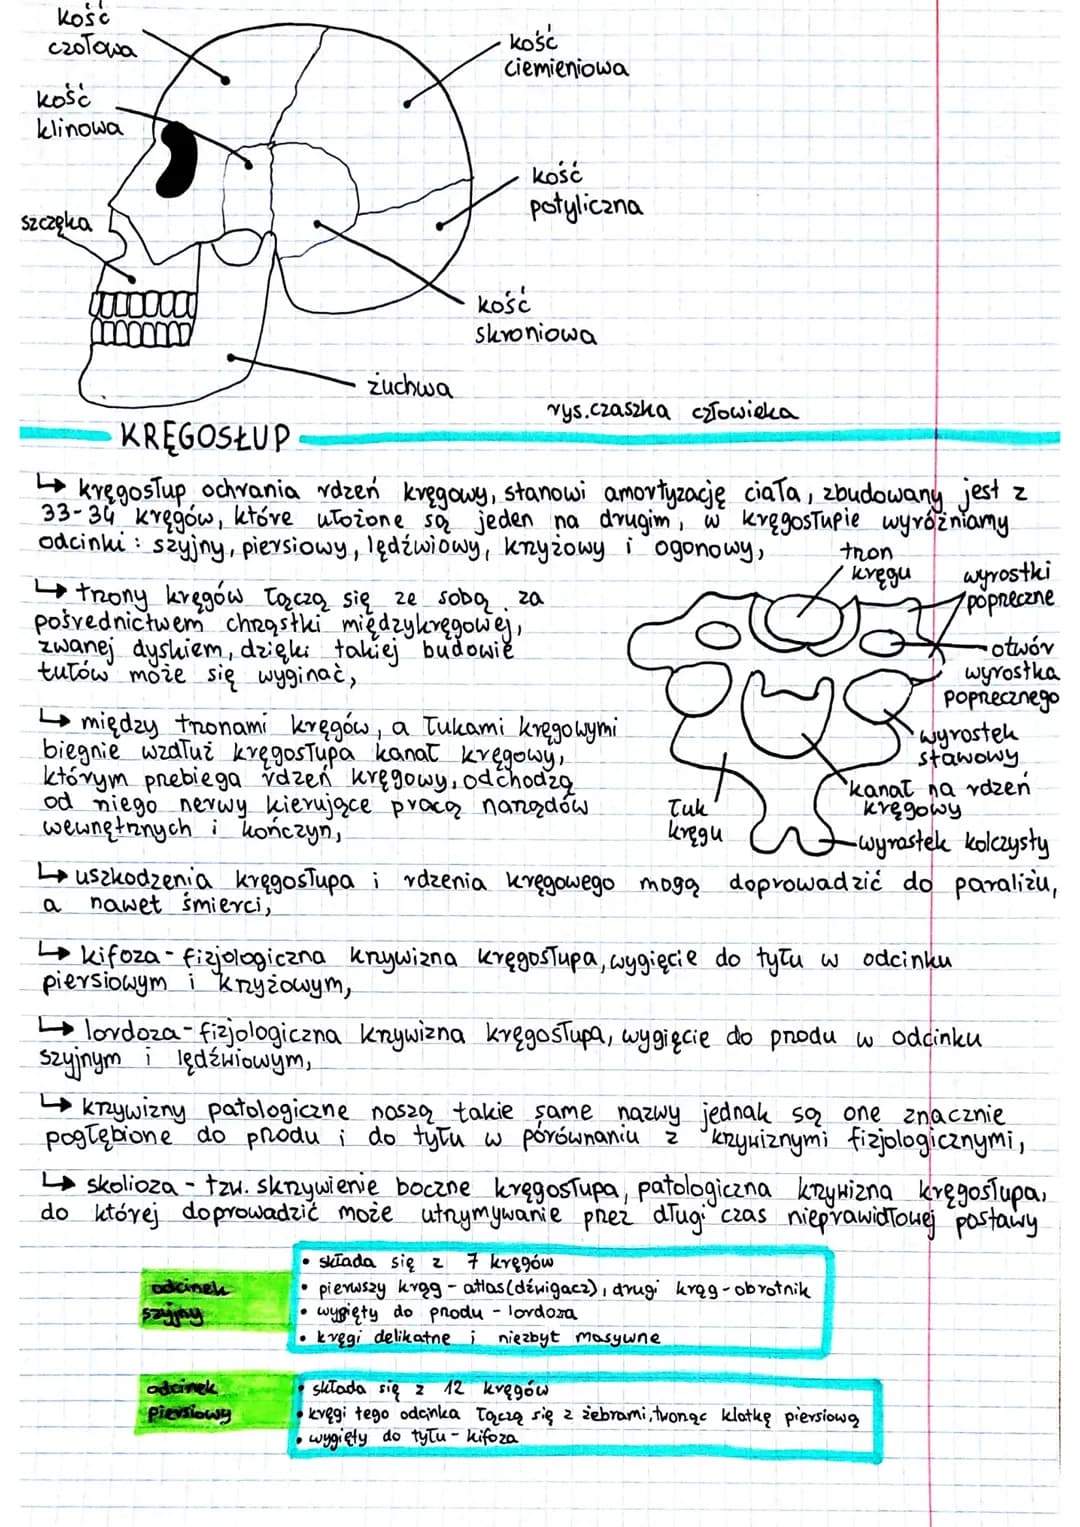 kość
czołowa
kość
ciemieniowa
kość
klinowa
kość
potyliczna
szczęka
kość
skroniowa
żuchwa
rys. czaszka człowieka
KRĘGOSŁUP
↳ kręgosłup ochrania rdzeń kręgowy, stanowi amortyzację ciała, zbudowany jest z
33-34 kręgów, które ułożone są jeden na drugim, w kręgosłupie wyróżniamy
odcinki: szyjny, piersiowy, lędźwiowy, krzyżowy i ogonowy,
↳ trzony kręgów łączą się ze sobą za
pośrednictwem chrząstki międzykręgowej,
zwanej dyskiem, dzięki takiej budowie
tułów może się wyginać,
↳ między trzonami kręgów, a łukami kręgowymi
biegnie wzdłuż kręgosłupa kanał kręgowy,
którym przebiega rdzeń kręgowy, odchodzą
od niego nerwy kierujące pracą narządów
wewnętrznych i kończyn,
trzon
kręgu
wyrostki
poprzeczne
otwór
wyrostka
poprzecznego
wyrostek
stawowy
kanał na rdzeń
kręgowy
łuk
kręgu
wyrostek kolczysty
↳ uszkodzenia kręgosłupa i rdzenia kręgowego mogą doprowadzić do paraliżu,
a nawet śmierci,
↳ kifoza - fizjologiczna krzywizna kręgosłupa, wygięcie do tyłu w odcinku
piersiowym i krzyżowym,
↳ lordoza - fizjologiczna krzywizna kręgosłupa, wygięcie do przodu w odcinku
szyjnym i lędźwiowym,
↳ krzywizny patologiczne noszą takie same nazwy jednak są one znacznie
pogłębione do przodu i do tyłu w porównaniu z krzywiznymi fizjologicznymi,
↳ skolioza - tzw. skrzywienie boczne kręgosłupa, patologiczna krzywizna kręgosłupa,
do której doprowadzić może utrzymywanie przez długi czas nieprawidłowej postawy
odcinek
szyjny
• składa się z 7 kręgów
• pierwszy krąg - atlas (dźwigacz), drugi krąg - obrotnik
• wygięty do przodu - lordoza
• kręgi delikatne i niezbyt masywne
odcinek
piersiowy
• składa się z 12 kręgów
• kręgi tego odcinka łączą się z żebrami, tworząc klatkę piersiową
• wygięty do tyłu - kifoza